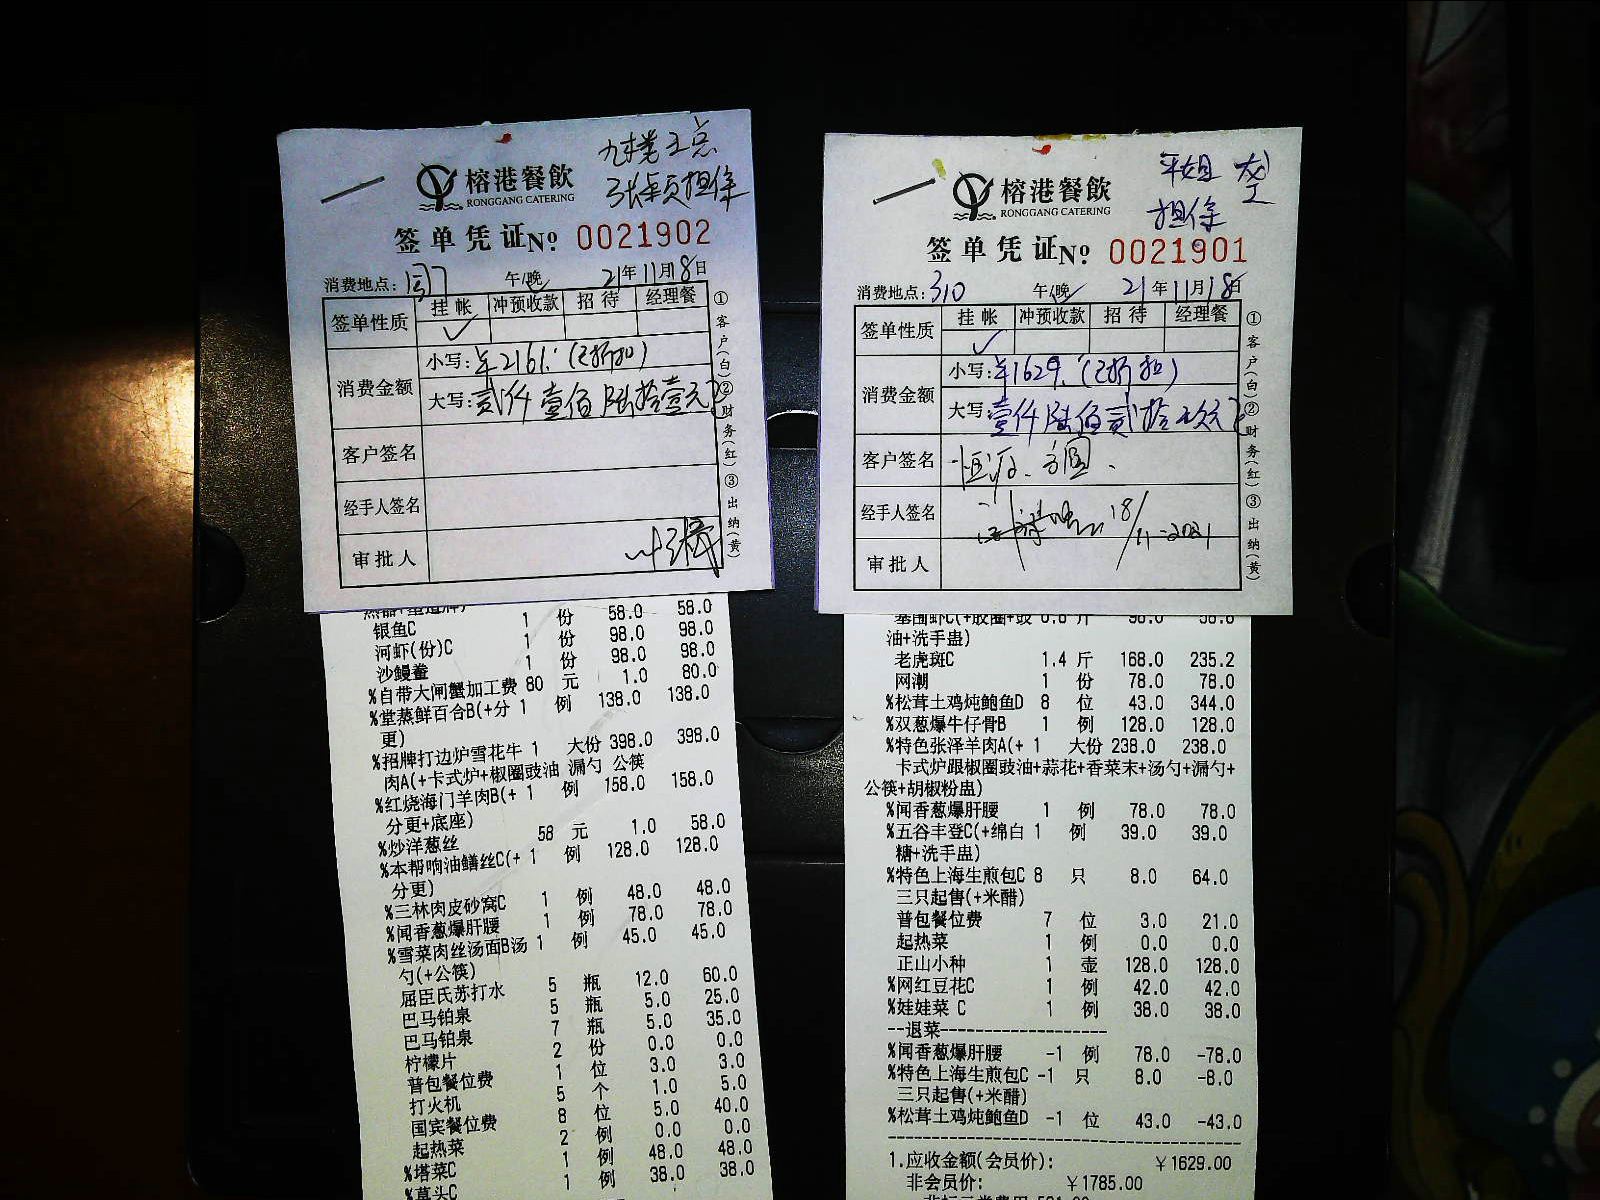 榕港餐飲
RONGGANG CATERING
签单凭证№ 0021902
消费地点: 午/晚 21年11月18日
签单性质 挂帐 冲预收款 招待 经理餐
✓
消费金额
小写:¥2161.(已折扣)
大写:贰仟壹佰陆拾壹元
客户签名
经手人签名
审批人
①客户(白)②财务(红)③出纳(黄)
银鱼C 1 份 58.0 58.0
河虾(份)C 1 份 98.0 98.0
沙鳗鲞 1 份 98.0 98.0
%自带大闸蟹加工费 80 元 1.0 80.0
%堂蒸鲜百合B(+分 1 例 138.0 138.0
更)
%招牌打边炉雪花牛 1 大份 398.0 398.0
肉A(+卡式炉+椒圈豉油 漏勺 公筷
%红烧海门羊肉B(+ 1 例 158.0 158.0
分更+底座)
%炒洋葱丝 58 元 1.0 58.0
%本帮响油鳝丝C(+ 1 例 128.0 128.0
分更)
%三林肉皮砂窝C 1 例 48.0 48.0
%闻香葱爆肝腰 1 例 78.0 78.0
%雪菜肉丝汤面B汤 1 例 45.0 45.0
勺(+公筷)
屈臣氏苏打水 5 瓶 12.0 60.0
巴马铂泉 5 瓶 5.0 25.0
巴马铂泉 7 瓶 5.0 35.0
柠檬片 2 份 0.0 0.0
普包餐位费 1 位 3.0 3.0
打火机 5 个 1.0 5.0
国宾餐位费 8 位 5.0 40.0
起热菜 2 例 0.0 0.0
%塔菜C 1 例 48.0 48.0
%草头C 1 例 38.0 38.0
平姐
担保
榕港餐飲
RONGGANG CATERING
签单凭证№ 0021901
消费地点:310 午/晚 21年11月18日
签单性质 挂帐 冲预收款 招待 经理餐
✓
消费金额
小写:¥1629.(已折扣)
大写:壹仟陆佰贰拾玖元
客户签名
经手人签名 18/11-2021
审批人
①客户(白)②财务(红)③出纳(黄)
油+洗手盅)
老虎斑C 1.4 斤 168.0 235.2
网潮 1 份 78.0 78.0
%松茸土鸡炖鲍鱼D 8 位 43.0 344.0
%双葱爆牛仔骨B 1 例 128.0 128.0
%特色张泽羊肉A(+ 1 大份 238.0 238.0
卡式炉跟椒圈豉油+蒜花+香菜末+汤勺+漏勺+
公筷+胡椒粉盅)
%闻香葱爆肝腰 1 例 78.0 78.0
%五谷丰登C(+绵白 1 例 39.0 39.0
糖+洗手盅)
%特色上海生煎包C 8 只 8.0 64.0
三只起售(+米醋)
普包餐位费 7 位 3.0 21.0
起热菜 1 例 0.0 0.0
正山小种 1 壶 128.0 128.0
%网红豆花C 1 例 42.0 42.0
%娃娃菜 C 1 例 38.0 38.0
--退菜--------------------
%闻香葱爆肝腰 -1 例 78.0 -78.0
%特色上海生煎包C -1 只 8.0 -8.0
三只起售(+米醋)
%松茸土鸡炖鲍鱼D -1 位 43.0 -43.0
1.应收金额(会员价): ￥1629.00
非会员价: ￥1785.00